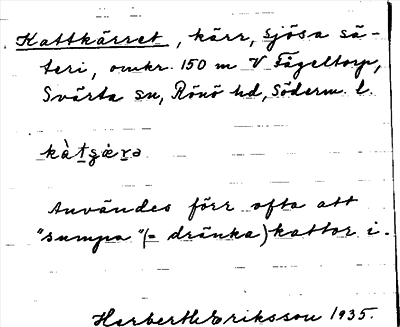 Kattkärret, kärr, Sjösa sä-
teri, omkr. 150 m V Fågeltorp,
Svärta sn, Rönö hd, Söderm. l.
kàtɕæ̀rə
Användes förr ofta att
"sumpa" (= dränka) kattor i.
Herbert Eriksson 1935.